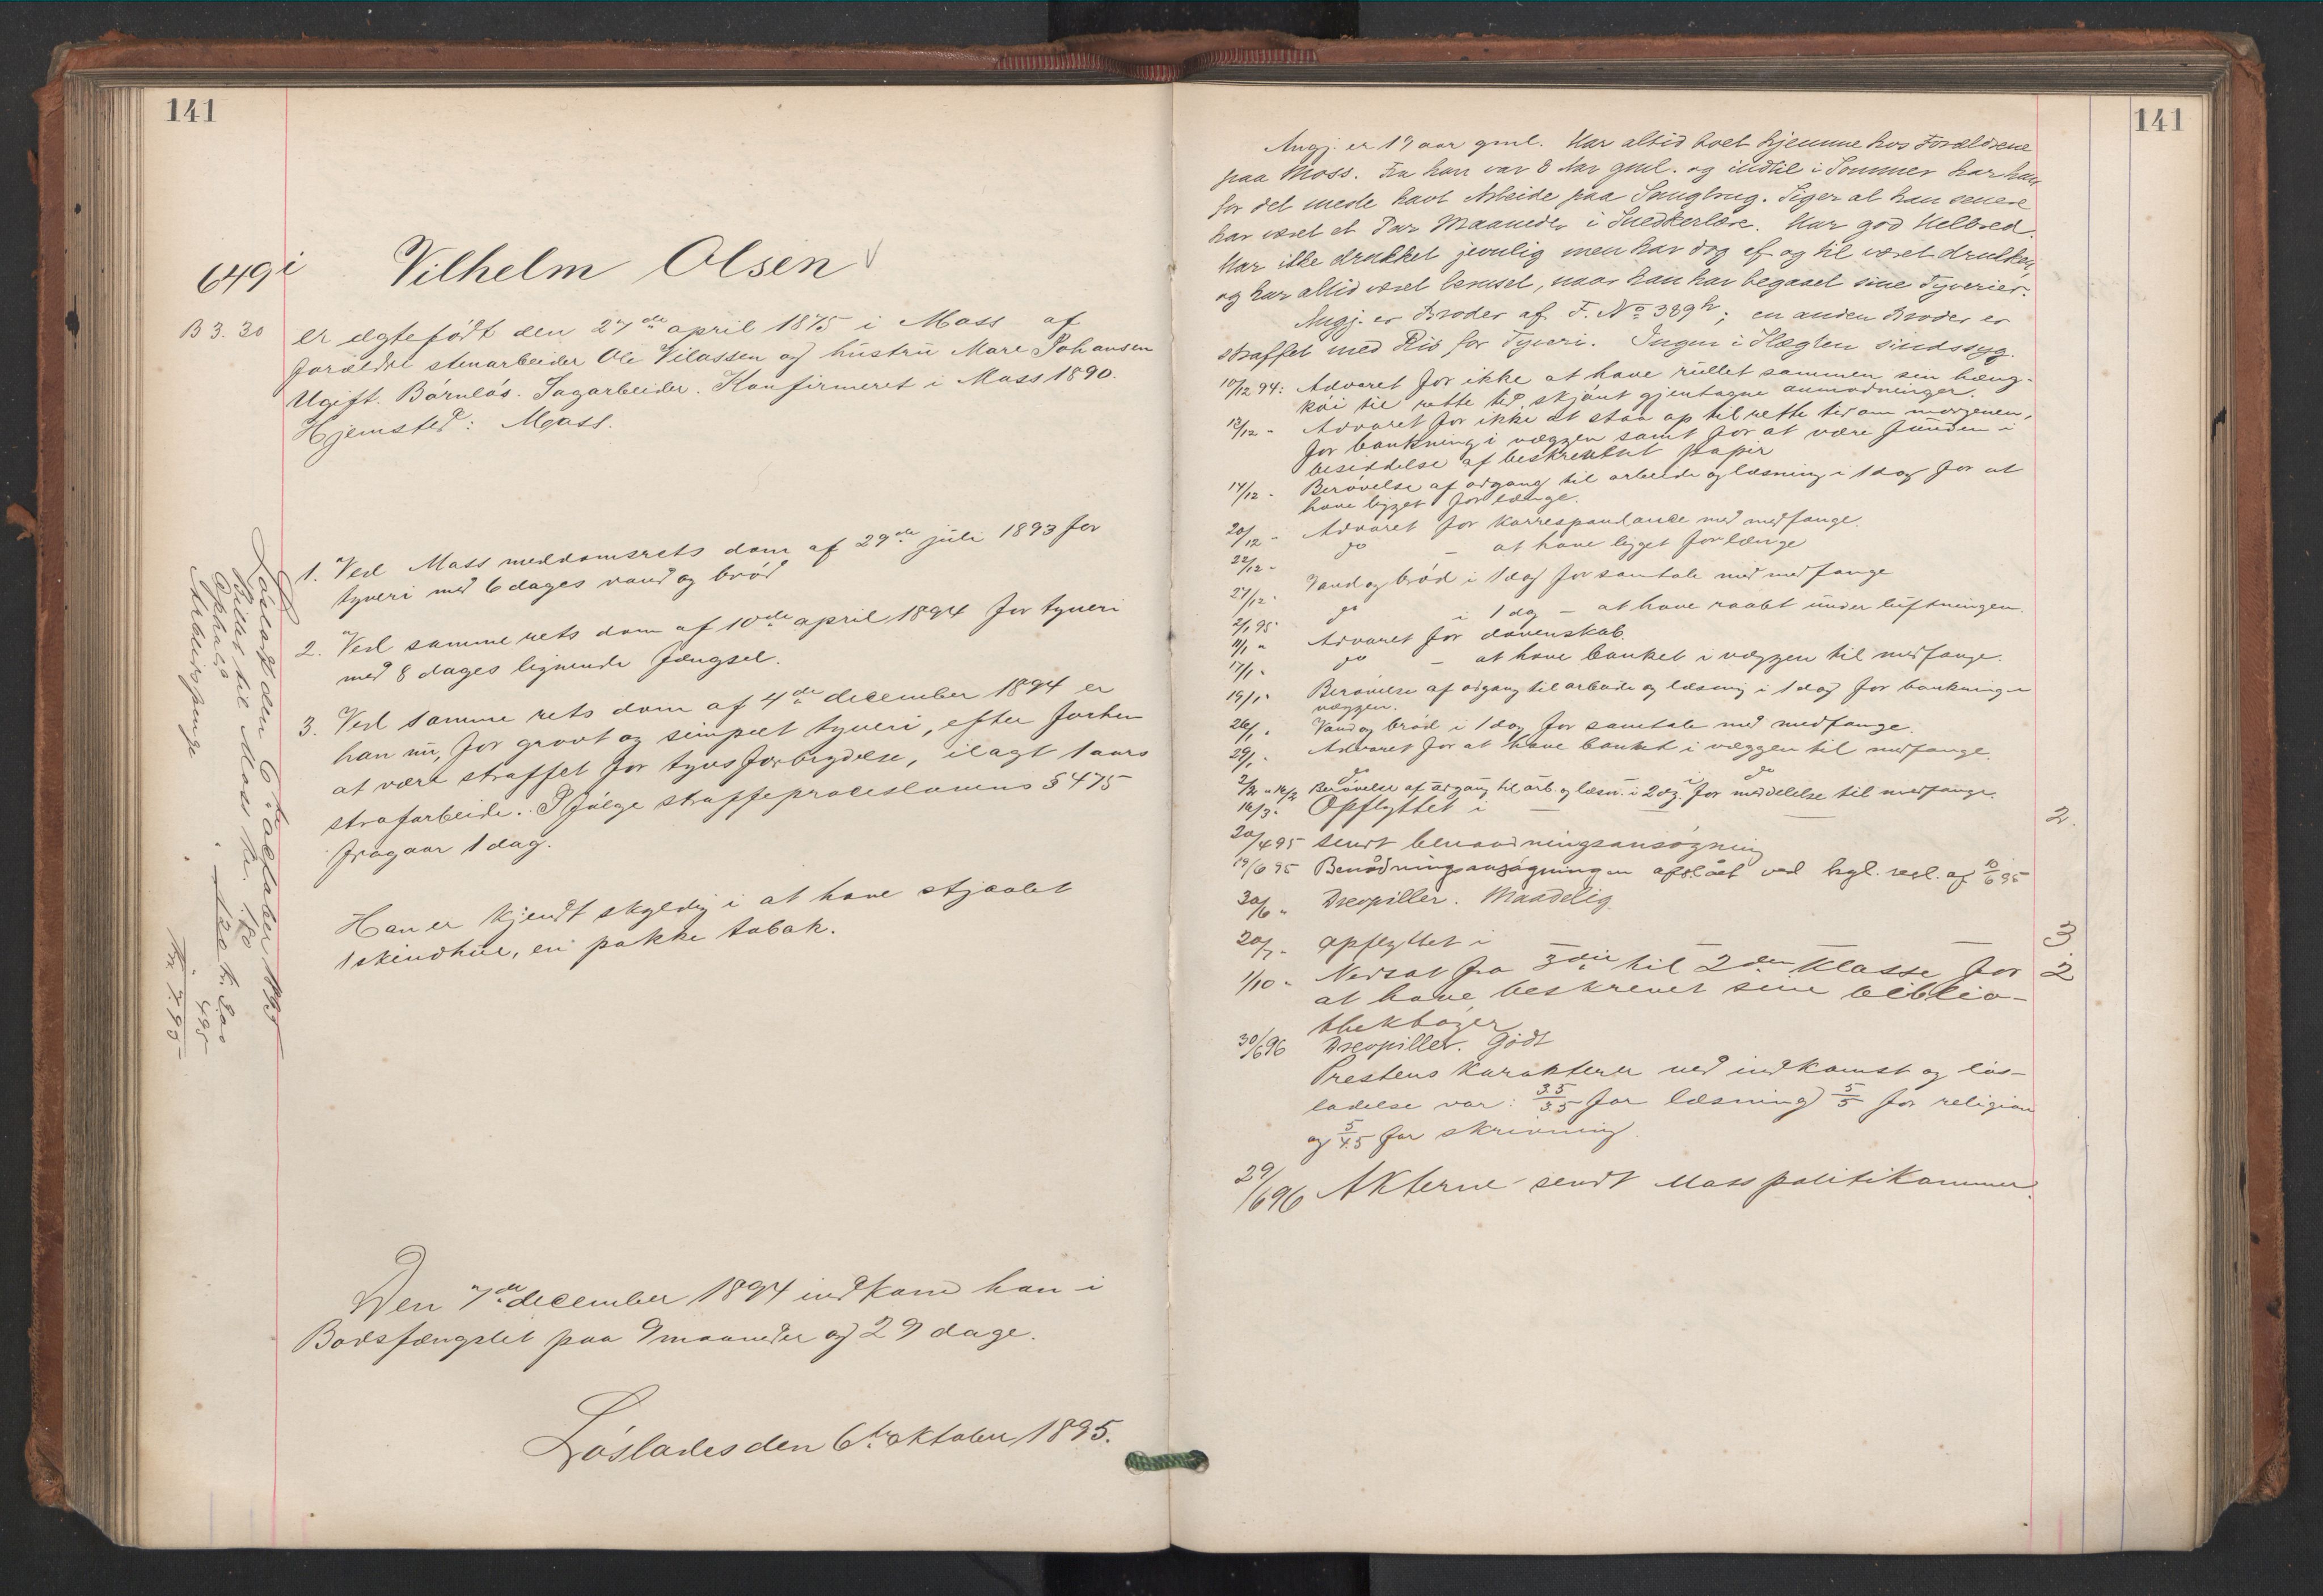 141
649i Vilhelm Olsen
B 3. 30
er egtefödt den 27de april 1875 i Moss af
forældre stenarbeider Ole Vilassen og hustru Mare Johansen
Ugift. Börnlös. Sagarbeider. Konfirmeret i Moss 1890.
Hjemsted: Moss.
1. Ved Moss meddomsrets dom af 29de juli 1893 for
tyveri med 6 dages vand og bröd
2. Ved samme rets dom af 10de april 1894 for tyveri
med 8 dages lignende fængsel.
3. Ved samme rets dom af 4de december 1894 er
han nu, for grovt og simpelt tyveri, efter forhen
at være straffet for tyvsforbrydelse, ilagt 1 aars
strafarbeide. I fölge straffeproceslovens § 475
fragaar 1 dag.
Han er kjendt skyldig i at have stjaalet
1 skindhue, en pakke tobak.
Den 7de december 1894 indkom han i
Bodsfængslet paa 9 maaneder og 29 dage.
Löslades den 6te oktober 1895.
Lösladt den 6te oktober 1895
Billet til Moss kr. 1.80
Ophold
Arbeidspenge
kr. 3.00
4.95
kr. 7.95
141
Angj. er 19 aar gml. Har altid boet hjemme hos Forældrene
paa Moss. Fra han var 8 Aar gml. og indtil i Sommer har han
for det meste havt Arbeide paa Sangbrug. Siger at han senere
har været et Par Maaneder i Snedkerlære. Har god Helbred.
Har ikke drukket jevnlig men har dog af og til været drukken,
og har altid været beruset, naar han har begaaet sine Tyverier.
Angj. er Broder af F. No 389h; en anden Broder er
straffet med Ris for Tyveri. Ingen i Slægten sindssyg.
10/12 94: Advaret for ikke at have rullet sammen sin hæng-
köi til rette tid, skjönt gjentagne anmodninger.
12/12 " Advaret for ikke at staa op til rette tid om morgenen,
for bankning i væggen samt for at være funden i
besiddelse af beskrevent papir
14/12 " Berövelse af adgang til arbeide og læsning i 1 dag for at
have ligget for længe.
20/12 " Advaret for korrespondance med medfange.
22/12 " do – at have ligget for længe
27/12 " Vand og bröd i 1 dag for samtale med medfange
2/1 95 do i 1 dag – at have raabt under luftningen.
11/1 " Advaret for dovenskab.
17/1 " do – at have banket i væggen til medfange.
19/1 " Berövelse af adgang til arbeide og læsning i 1 dag for bankning i
væggen.
26/1 " Vand og bröd i 1 dag for samtale med medfange.
29/1 " Advaret for at have banket i væggen til medfange.
do do
Berövelse af adgang til arb. og læsn. i 2 dg. for meddelelse til medfange.
16/3 " Opflyttet i — — — 2.
20/4 95 sendt benaadningsansögning
19/6 95 Benådningsansögningen afslåt ved kgl. resl. af 10/6 95
30/6 " Dreopiller. Maadelig.
20/7 " opflyttet i — — — 3
1/10 " Nedsat fra 3die til 2den Klasse for 2
at have beskrevet sine biblio-
thekböger
30/6 96 Dreopiller. Godt
Prestens Karakterer ved indkomst og lös-
ladelse var: 3.5/3.5 for læsning 5/5 for religion
og 5/4.5 for skrivning.
29/6 96 Akterne sendt Moss politikammer.